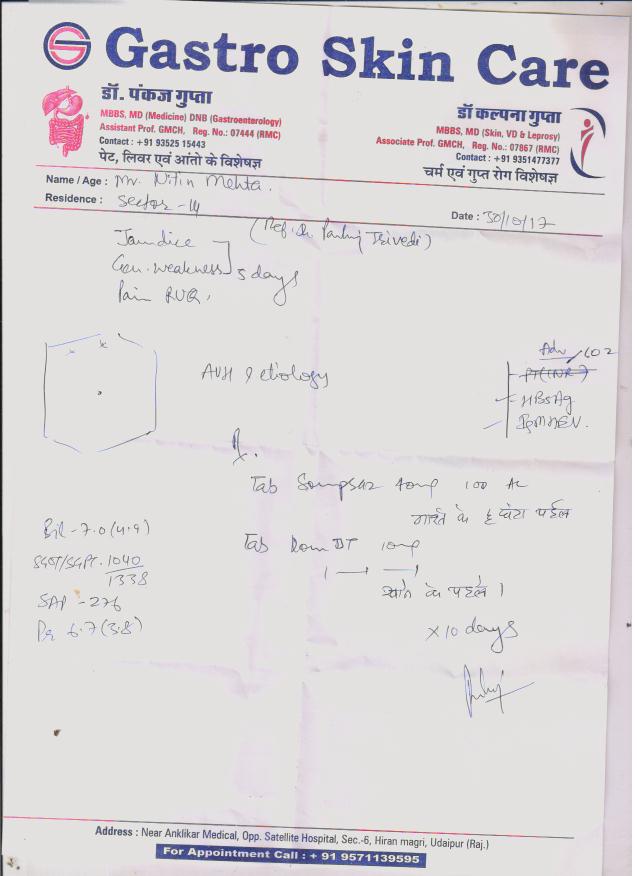 Gastro Skin Care
डॉ. पंकज गुप्ता
MBBS, MD (Medicine) DNB (Gastroenterology)
Assistant Prof. GMCH, Reg. No.: 07444 (RMC)
Contact : +91 93525 15443
पेट, लिवर एवं आंतो के विशेषज्ञ
डॉ कल्पना गुप्ता
MBBS, MD (Skin, VD & Leprosy)
Associate Prof. GMCH, Reg. No.: 07867 (RMC)
Contact : +91 9351477377
चर्म एवं गुप्त रोग विशेषज्ञ
Name / Age : Mr. Nitin Mehta.
Residence : Sector - 14
Date : 30/10/17
(Ref. Dr. Pankaj Trivedi)
Jaundice
Gen. weakness 5 days
Pain RUQ.
Adv
PT(INR)
HBsAg
IgM HEV.
AVH ? etiology
Rx.
Tab 40mg
के पहले
Tab Dom DT 10mg
1 — — 1
खाने के पहले ।
x 10 days
Bil - 7.0 (4.9)
SGOT/SGPT. 1040
1338
SAP - 276
Pr 6.7 (3.8)
Address : Near Anklikar Medical, Opp. Satellite Hospital, Sec.-6, Hiran magri, Udaipur (Raj.)
For Appointment Call : + 91 9571139595